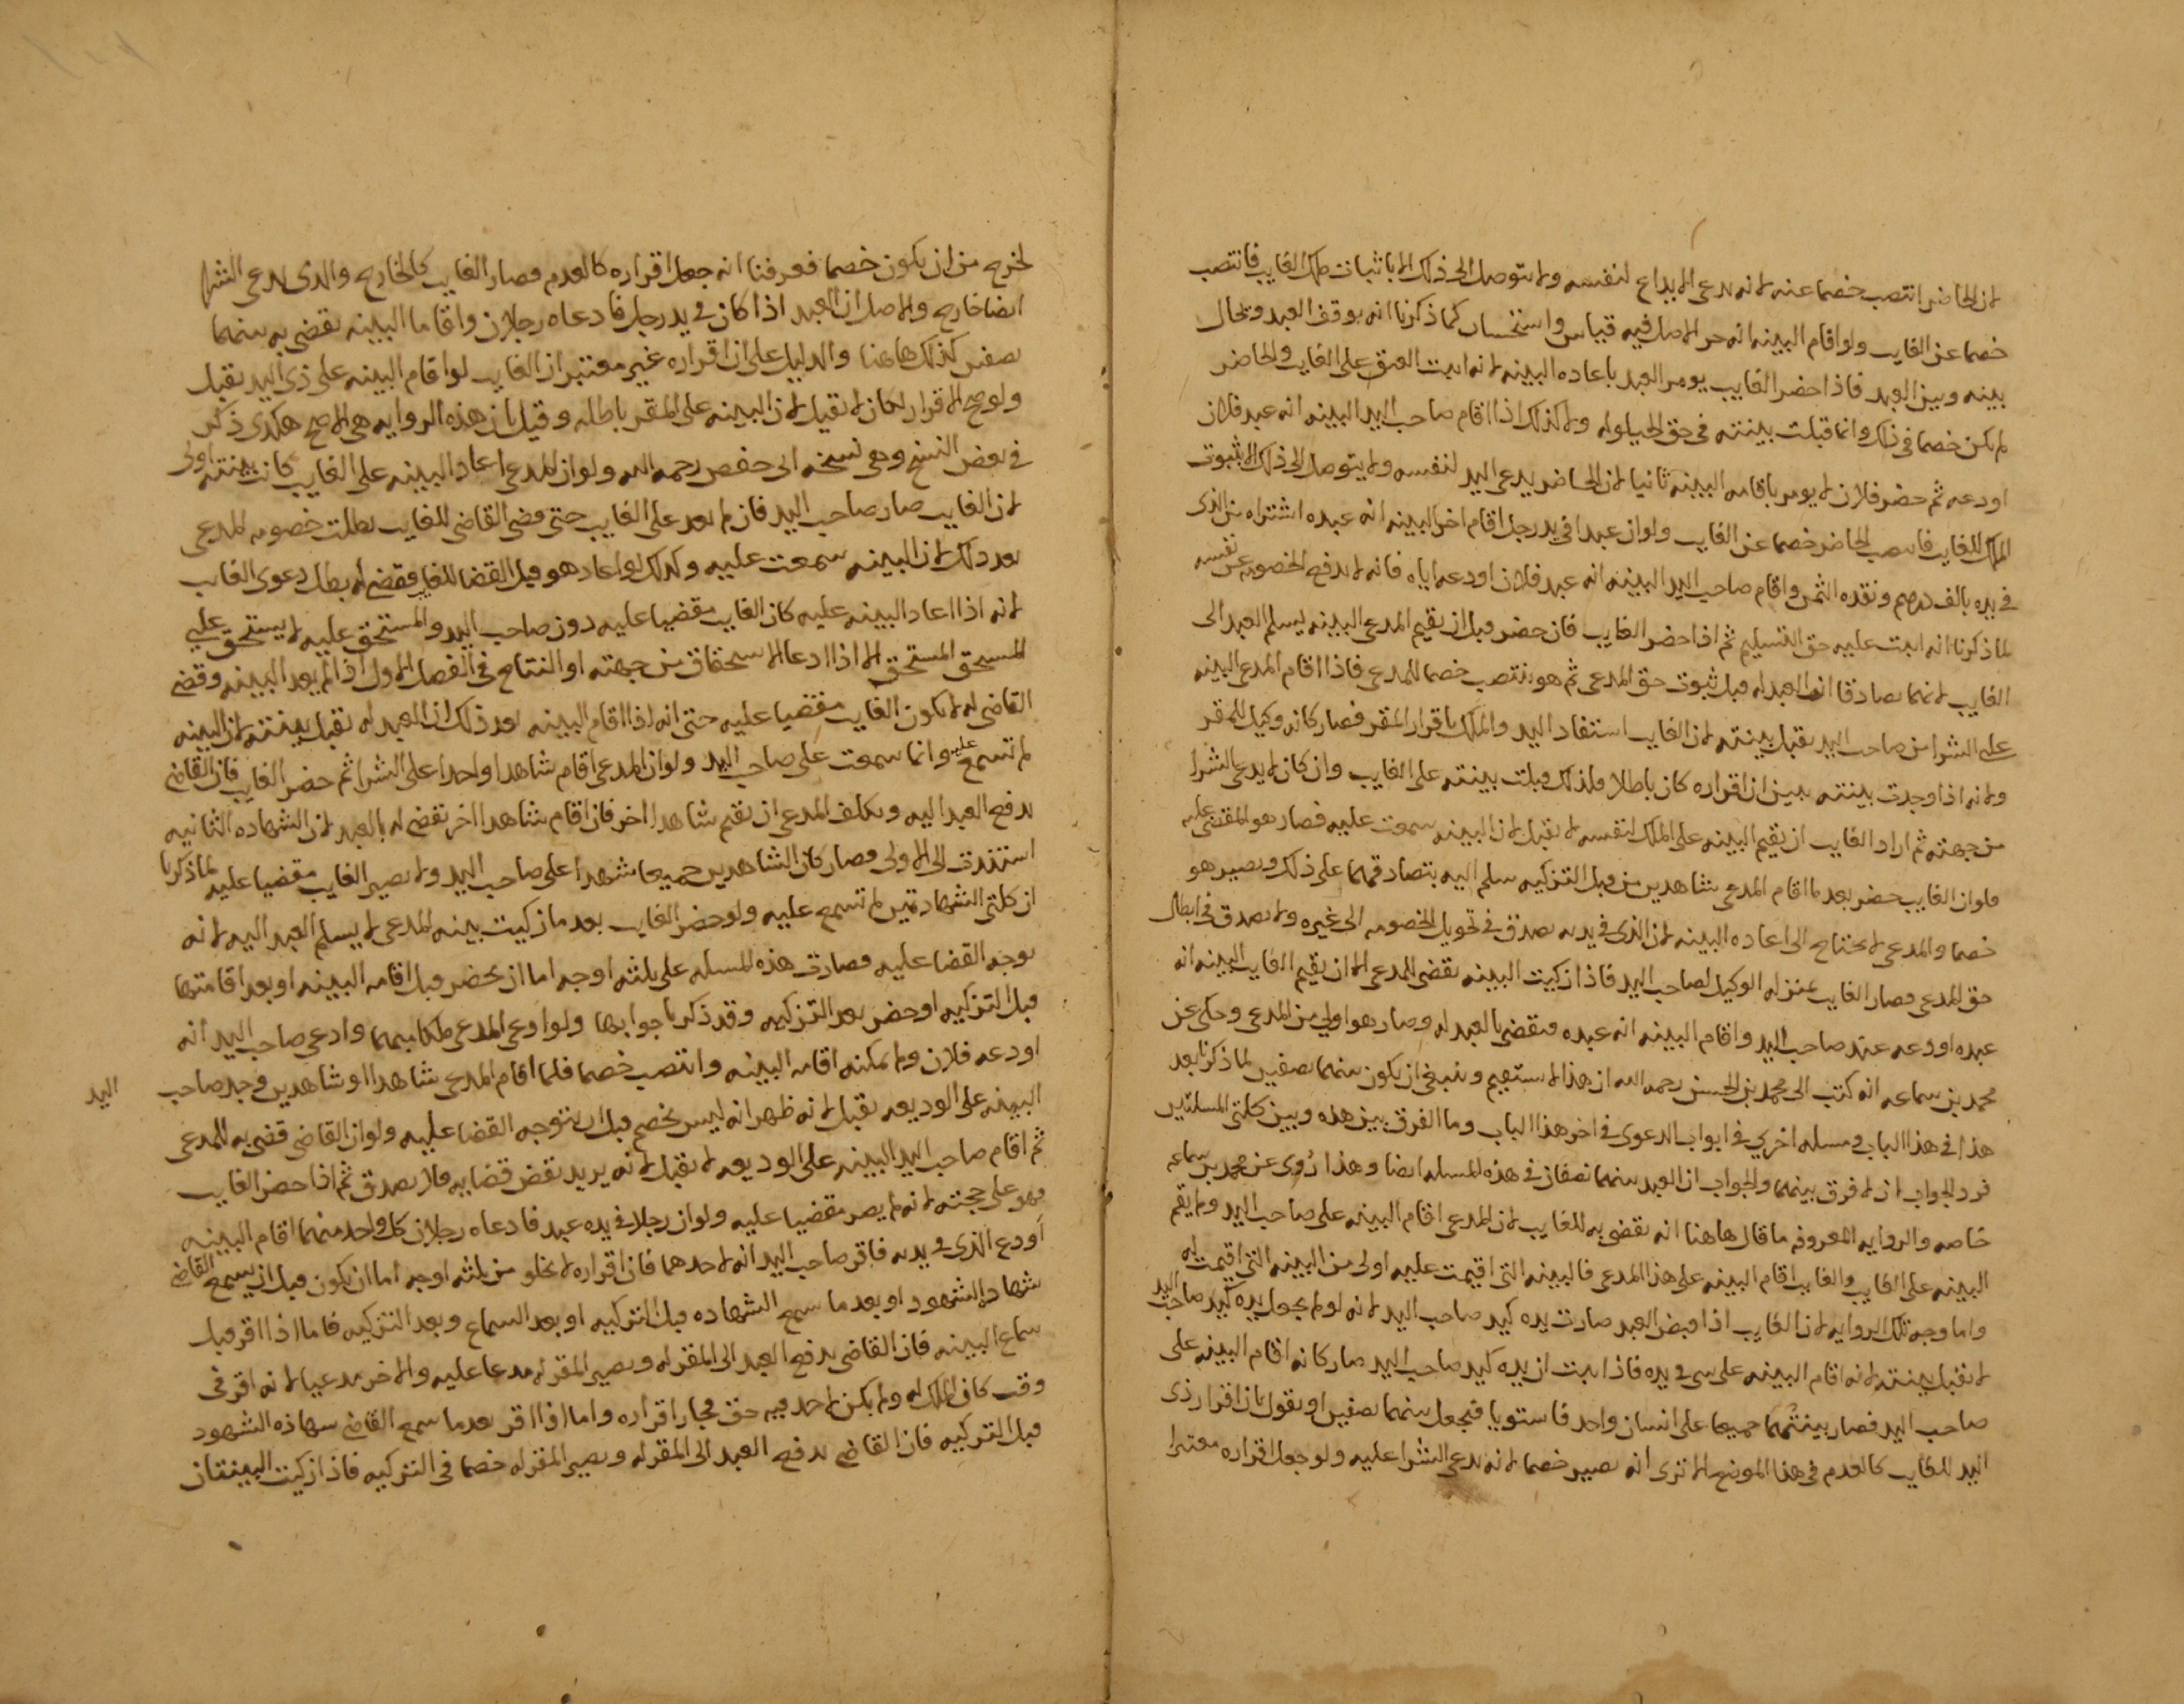 لان الحاضر انتصب خصما عنه لانه يدعي الايداع لنفسه ولا يتوصل الى ذلك الا باثبات ملك الغايب فانتصب
خصما عن الغايب ولو اقام البينه انه حر الاصل فيه قياس واستحسان كما ذكرنا انه يوقف العبد ويحال
بينه وبين العبد فاذا حضر الغايب يومر العبد باعاده البينه لانه اثبت العتق على الغايب والحاضر
لم يكن خصما في ذلك وانما قبلت بينته في حق الحيلوله ولا كذلك اذا اقام صاحب اليد البينه انه عبد فلان
اودعه ثم حضر فلان لا يومر باقامه البينه ثانيا لان الحاضر يدعي اليد لنفسه ولا يتوصل الى ذلك الا بثبوت
الملك للغايب فانتصب الحاضر خصما عن الغايب ولو ان عبدا في يد رجل اقام اخر البينه انه عبده اشتراه من الذي
في يده بالف درهم ونقده الثمن واقام صاحب اليد البينه انه عبد فلان اودعه اياه فانه لا يدفع الخصومه عن نفسه
لما ذكرنا انه اثبت عليه حق التسليم ثم اذا حضر الغايب فان حضر قبل ان يقيم المدعي البينه يسلم العبد الى
الغايب لانهما تصادقا ان العبد له قبل ثبوت حق المدعي ثم هو ينتصب خصما للمدعي فاذا اقام المدعي البينه
على الشرا من صاحب اليد تقبل بينته لان الغايب استفاد اليد والملك باقرار المقر فصار كانه وكيل للمقر
ولانه اذا وجدت بينته تبين ان اقراره كان باطلا فلذلك قبلت بينته على الغايب وان كان لا يدعي الشرا
من جهته ثم اراد الغايب ان يقيم البينه على الملك لنفسه لا تقبل لان البينه سمعت عليه فصار هو المقضي عليه
فلو ان الغايب حضر بعد ما اقام المدعي شاهدين من قبل التزكيه سلم اليه بتصادقهما على ذلك ويصير هو
خصما والمدعي لا يحتاج الى اعاده البينه لان الذي في يده يصدق في تحويل الخصومه الى غيره ولا يصدق في ابطال
حق المدعي فصار الغايب بمنزله الوكيل لصاحب اليد فاذا زكيت البينه تقضى للمدعي الا ان يقيم الغايب البينه انه
عبده اودعه عند صاحب اليد واقام البينه انه عبده فيقضى بالعبد له وصار هو اولى من المدعي وحكي عن
محمد بن سماعه انه كتب الى محمد بن الحسن رحمه الله ان هذا لا يستقيم وينبغي ان يكون بينهما نصفين لما ذكرنا بعد
هذا في هذا الباب في مسله اخري في ابواب الدعوى في اخر هذا الباب وما الفرق بين هذه وبين كلتي المسلتين
فرد الجواب ان لا فرق بينهما والجواب ان العبد بينهما نصفان في هذه المسله ايضا وهذا روى عن محمد بن سماعه
خاصه والروايه المعروفه ما قال هاهنا انه يقضى به للغايب لان المدعي اقام البينه على صاحب اليد ولم يقم
البينه على الغايب والغايب اقام البينه على هذا المدعي فالبينه التي اقيمت عليه اولى من البينه التي اقيمت له
واما وجه تلك الروايه لان الغايب اذا قبض العبد صارت يده كيد صاحب اليد لانه لو لم يجعل يده كيد صاحب اليد
لا تقبل بينته لانه اقام البينه على شي في يده فاذا اثبت ان يده كيد صاحب اليد صار كانه اقام البينه على
صاحب اليد فصار بينتهما جميعا على انسان واحد فاستويا فيجعل بينهما نصفين او نقول بان اقرار ذي
اليد للغايب كالعدم في هذا الموضع الا ترى انه يصير خصما لانه يدعي الشرا عليه ولو جعل اقراره معتبرا
لخرج من ان يكون خصما فعرفنا انه جعل اقراره كالعدم فصار الغايب كالخارج والذي يدعي الشرا
ايضا خارج والاصل ان العبد اذا كان في يد رجل فادعاه رجلان واقاما البينه يقضى به بينهما
نصفين كذلك هاهنا والدليل على ان اقراره غير معتبر ان الغايب لو اقام البينه على ذي اليد تقبل
ولو صح الاقرار لكان لا تقبل لان البينه على المقر باطله وقيل بان هذه الروايه هي الاصح هكذى ذكر
في بعض النسخ وهي نسخه ابي حفص رحمه الله ولو ان المدعي اعاد البينه على الغايب كانت بينته اولى
لان الغايب صار صاحب اليد فان لم يعد على الغايب حتى قضى القاضي للغايب بطلت خصومه المدعي
بعد ذلك لان البينه سمعت عليه وكذلك لو اعاد هو قبل القضا للغايب فقضى له بطل دعوى الغايب
لانه اذا اعاد البينه عليه كان الغايب مقضيا عليه دون صاحب اليد والمستحق عليه لا يستحق على
المستحق المستحق الا اذا ادعا الاستحقاق من جهته او النتاج في الفصل الاول اذا لم يعد البينه وقضى
القاضي له لا يكون الغايب مقضيا عليه حتى انه اذا اقام البينه بعد ذلك ان العبد له تقبل بينته لان البينه
لم تسمع عليه وانما سمعت على صاحب اليد ولو ان المدعي اقام شاهدا واحدا على الشرا ثم حضر الغايب فان القاضي
يدفع العبد اليه ويكلف المدعي ان يقيم شاهدا اخر فان اقام شاهدا اخر تقضى له بالعبد لان الشهاده الثانيه
استندت الى الاولى فصار كان الشاهدين جميعا شهدا على صاحب اليد ولا يصير الغايب مقضيا عليه لما ذكرنا
ان كلتي الشهادتين لم تسمع عليه ولو حضر الغايب بعد ما زكيت بينه المدعي لا يسلم العبد اليه لانه
توجه القضا عليه فصارت هذه المسله على ثلثه اوجه اما ان يحضر قبل اقامه البينه او بعد اقامتها
قبل التزكيه او حضر بعد التزكيه وقد ذكرنا جوابها ولو ادعى المدعي ملكا مبهما وادعى صاحب اليد انه
اودعه فلان ولم يمكنه اقامه البينه وانتصب خصما فلما اقام المدعي شاهدا او شاهدين وجد صاحب اليد
البينه على الوديعه تقبل لانه ظهر انه ليس بخصم قبل ان يتوجه القضا عليه ولو ان القاضي قضى به للمدعي
ثم اقام صاحب اليد البينه على الوديعه لا تقبل لانه يريد نقض قضايه فلا يصدق ثم اذا حضر الغايب
فهو على حجته لانه لم يصر مقضيا عليه ولو ان رجلا في يده عبد فادعاه رجلان كل واحد منهما اقام البينه
اودع الذي في يده فاقر صاحب اليد انه لاحدهما فان اقراره لا يخلو من ثلثه اوجه اما ان يكون قبل ان يسمع القاضي
شهاده الشهود او بعد ما سمع الشهاده قبل التزكيه او بعد السماع وبعد التزكيه فاما اذا اقر قبل
سماع البينه فان القاضي يدفع العبد الى المقر له ويصير المقر له مدعا عليه والاخر مدعيا لانه اقر في
وقت كان الملك له ولم يكن لاحد فيه حق فجاز اقراره واما اذا اقر بعد ما سمع القاضي شهاده الشهود
قبل التزكيه فان القاضي يدفع العبد الى المقر له ويصير المقر له خصما في التزكيه فاذا زكيت البينتان